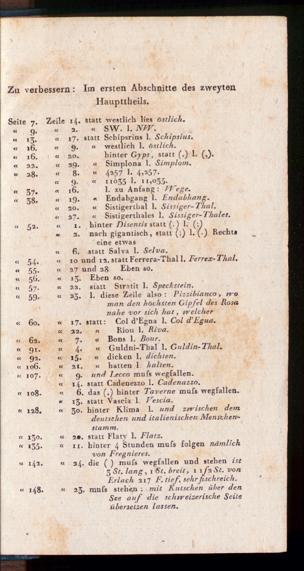 Zu verbessern: Im ersten Abschnitte des zweyten
Haupttheils.
Seite 7. Zeile 14. statt westlich lies östlich.
" 9. " 2. " SW. l. NW.
" 13. " 17. statt Schipsrins l. Schipsius.
" 16. " 9. " westlich l. östlich.
" 16. " 20. hinter Gyps, statt (.) l. (,).
" 22. " 29. " Simplona l. Simplom.
" 28. " 8. " 4257 l. 4,257.
" " 9. " 11035 l. 11,035.
" 37. " 16. l. zu Anfang: Wege.
" 38. " 19. " Endabgang l. Endabhang.
" " 20. " Sistigerthal l. Sissiger-Thal.
" " 27. " Sistigerthales l. Sissiger-Thales.
" 52. " 1. hinter Disentis statt (.) l. (;)
" " 2. nach gigantisch, statt (;) l. (.) Rechts
eine etwas
" " 6. statt Salva l. Selva.
" 54. " 10 und 12. statt Ferrera-Thal l. Ferrex-Thal.
" 55. " 27 und 28 Eben so.
" 56. " 13. Eben so.
" 57. " 22. statt Stratit l. Speckstein.
" 59. " 23. l. diese Zeile also: Pizzibianco, wo
man den höchsten Gipfel des Rosa
nahe vor sich hat, welcher
" 60. " 17. statt: Col d'Egna l. Col d'Egua.
" " 22. " Riou l. Riva.
" 62. " 7. " Bons l. Bour.
" 91. " 4. " Guldni-Thal l. Guldin-Thal.
" 92. " 15. " dicken l. dichten.
" 106. " 21. " hatten l. halten.
" 107. " 9. und Lecco muſs wegfallen.
" " 14. statt Cadenezzo l. Cadenazzo.
" 108. " 6. das (,) hinter Taverne muſs wegfallen.
" " 13. statt Vascia l. Vescia.
" 128. " 30. hinter Klima l. und zwischen dem
deutschen und italienischen Menschen-
stamm.
" 130. " 20. statt Flaty l. Flatz.
" 135. " 11. hinter 4 Stunden muſs folgen nämlich
von Fregnieres.
" 142. " 24. die ( ) muſs wegfallen und stehen ist
5 St. lang, 1 St. breit, 1 1/2 St. von
Erlach 217 F. tief, sehr fischreich.
" 148. " 23. muſs stehen: mit Kutschen über den
See auf die schweizerische Seite
übersetzen lassen.